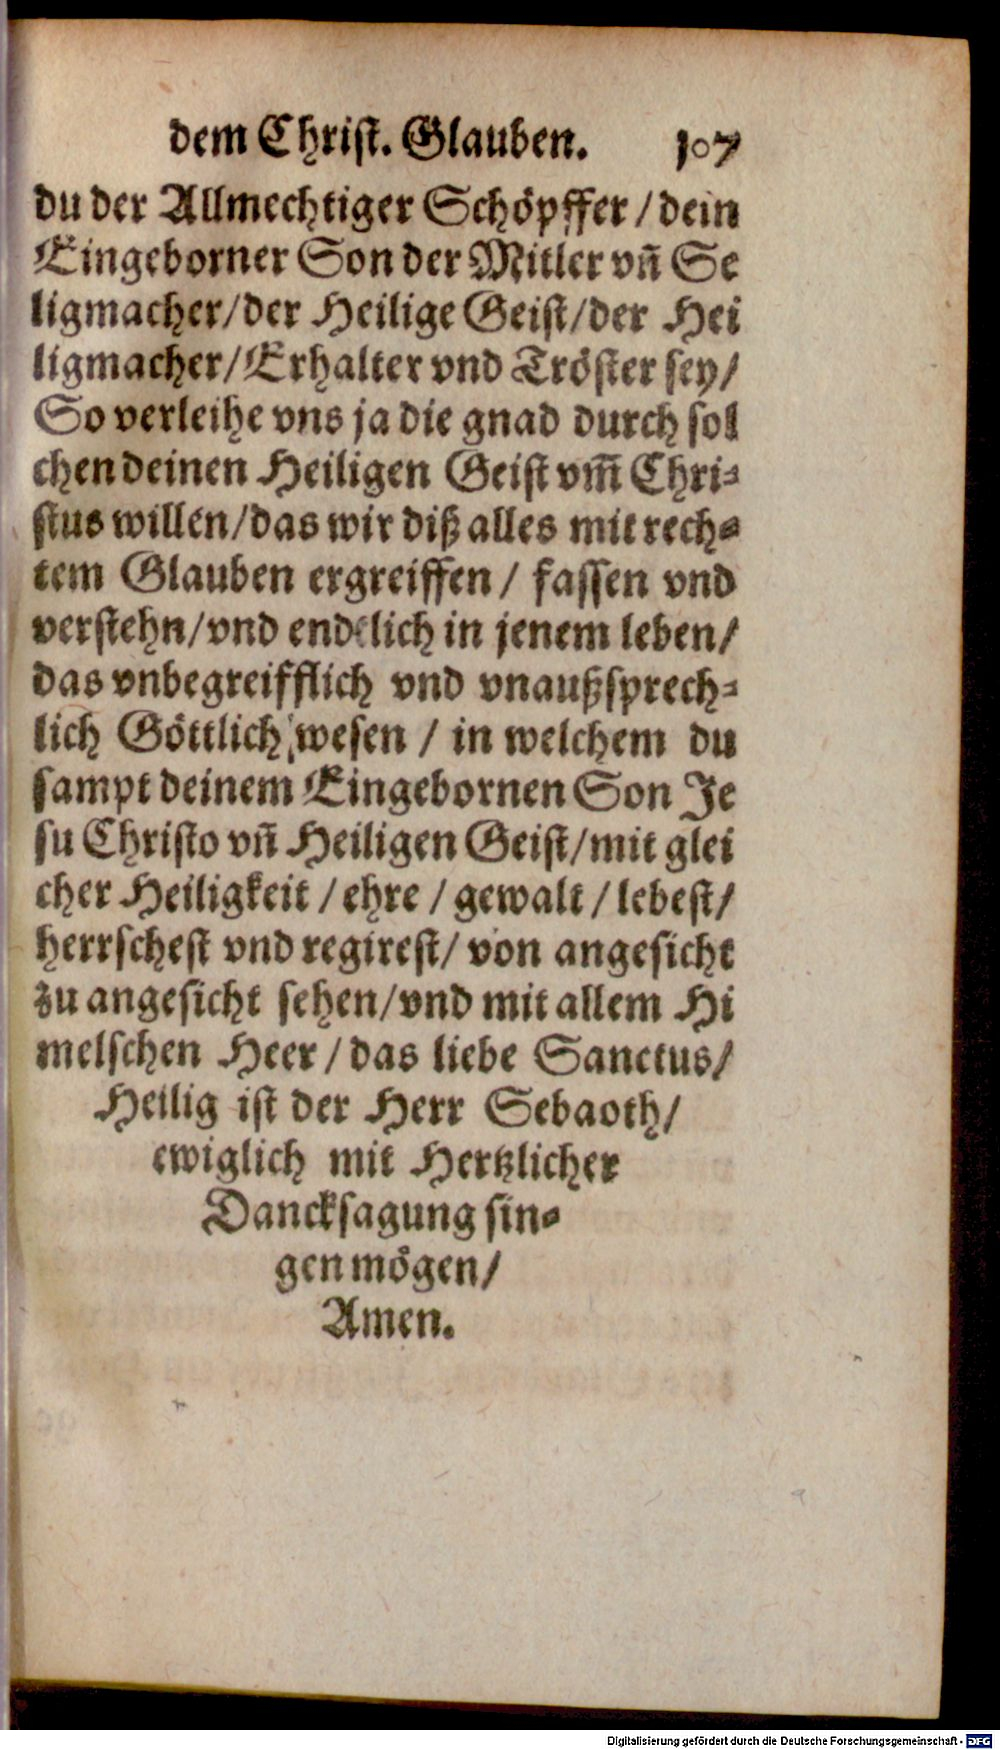 dem Christ. Glauben. 107
du der Allmechtiger Schöpffer / dein
Eingeborner Son der Mitler vñ Se
ligmacher/der Heilige Geist/der Hei
ligmacher/Erhalter vnd Tröster sey/
So verleihe vns ja die gnad durch sol
chen deinen Heiligen Geist vm̃ Chri-
stus willen/das wir diß alles mit rech-
tem Glauben ergreiffen / fassen vnd
verstehn/vnd endtlich in jenem leben/
das vnbegreifflich vnd vnaußsprech-
lich Göttlich wesen / in welchem du
sampt deinem Eingebornen Son Je
su Christo vñ Heiligen Geist/mit glei
cher Heiligkeit / ehre / gewalt / lebest/
herrschest vnd regirest/ von angesicht
zu angesicht sehen/vnd mit allem Hi
melschen Heer / das liebe Sanctus/
Heilig ist der Herr Sebaoth/
ewiglich mit Hertzlicher
Dancksagung sin-
gen mögen/
Amen.
Digitalisierung gefördert durch die Deutsche Forschungsgemeinschaft - DFG